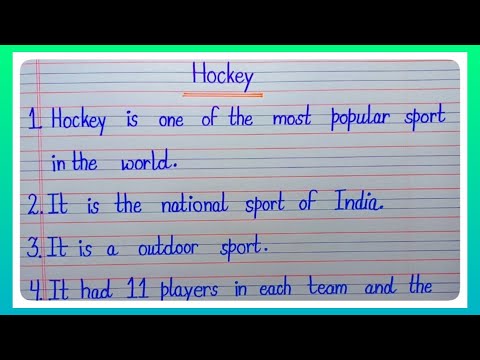 Hockey
1. Hockey is one of the most popular sport
in the world.
2. It is the national sport of India.
3. It is a outdoor sport.
4. It had 11 players in each team and the